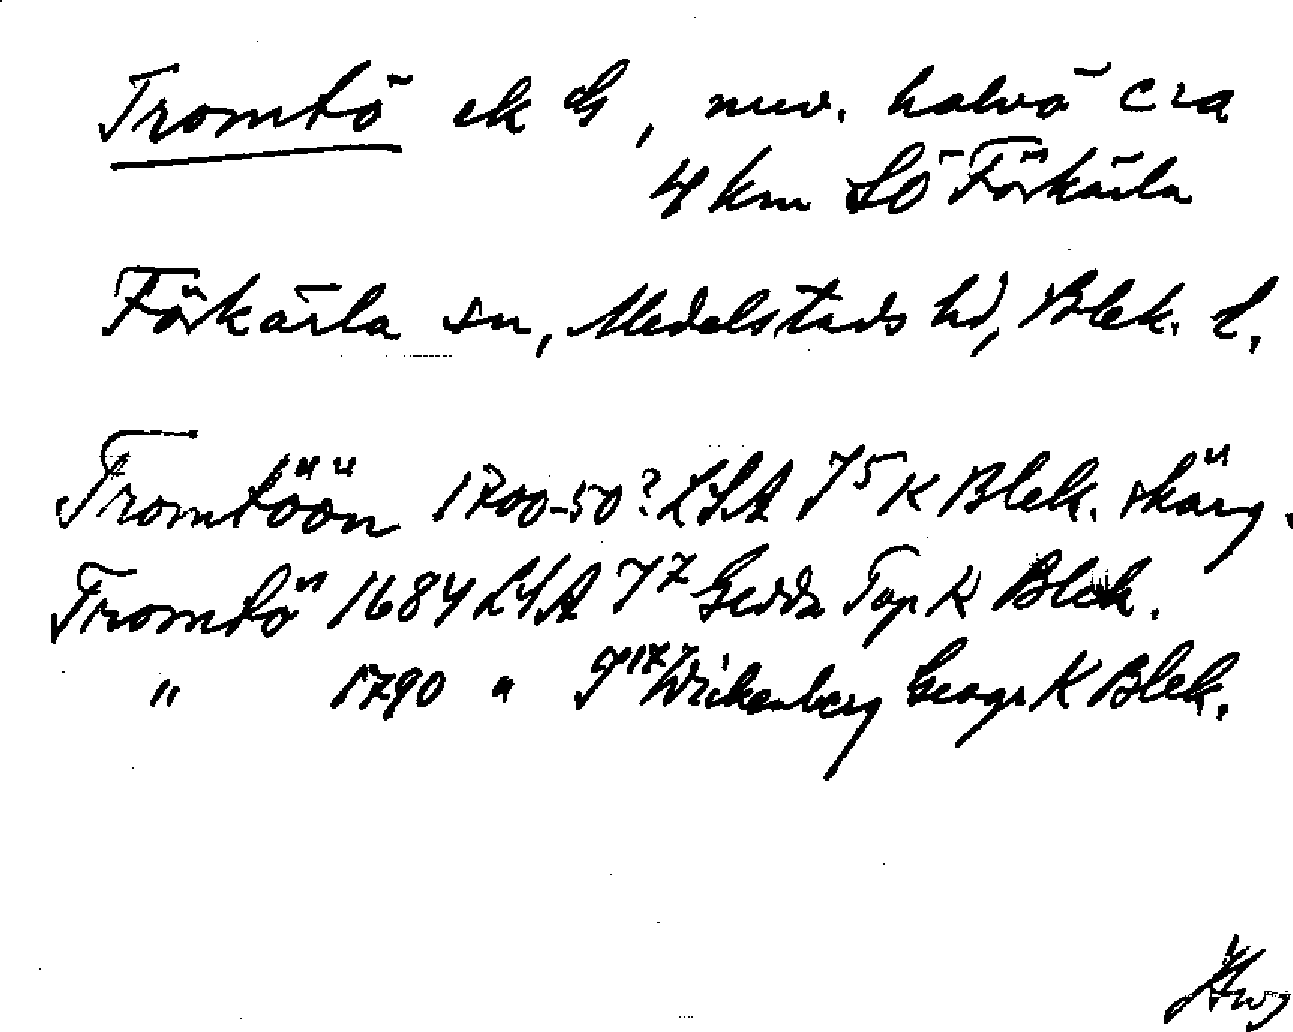 Tromtö ek G, nuv. halvö cra
4 km SÖ Förkärla
Förkärla sn, Medelstads hd, Blek. l.
Tromtöön 1700-50? LSA J5 K Blek. skärg.
Tromtö 1684 LSA J7 Gedda Top K Blek.
" 1790 " J17 Wickenberg Geogr K Blek.